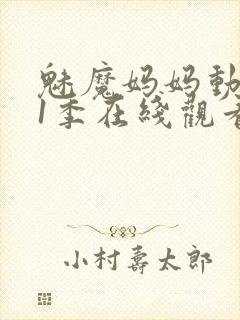 魅魔妈妈動
1季在綫觀看
小村壽太郎